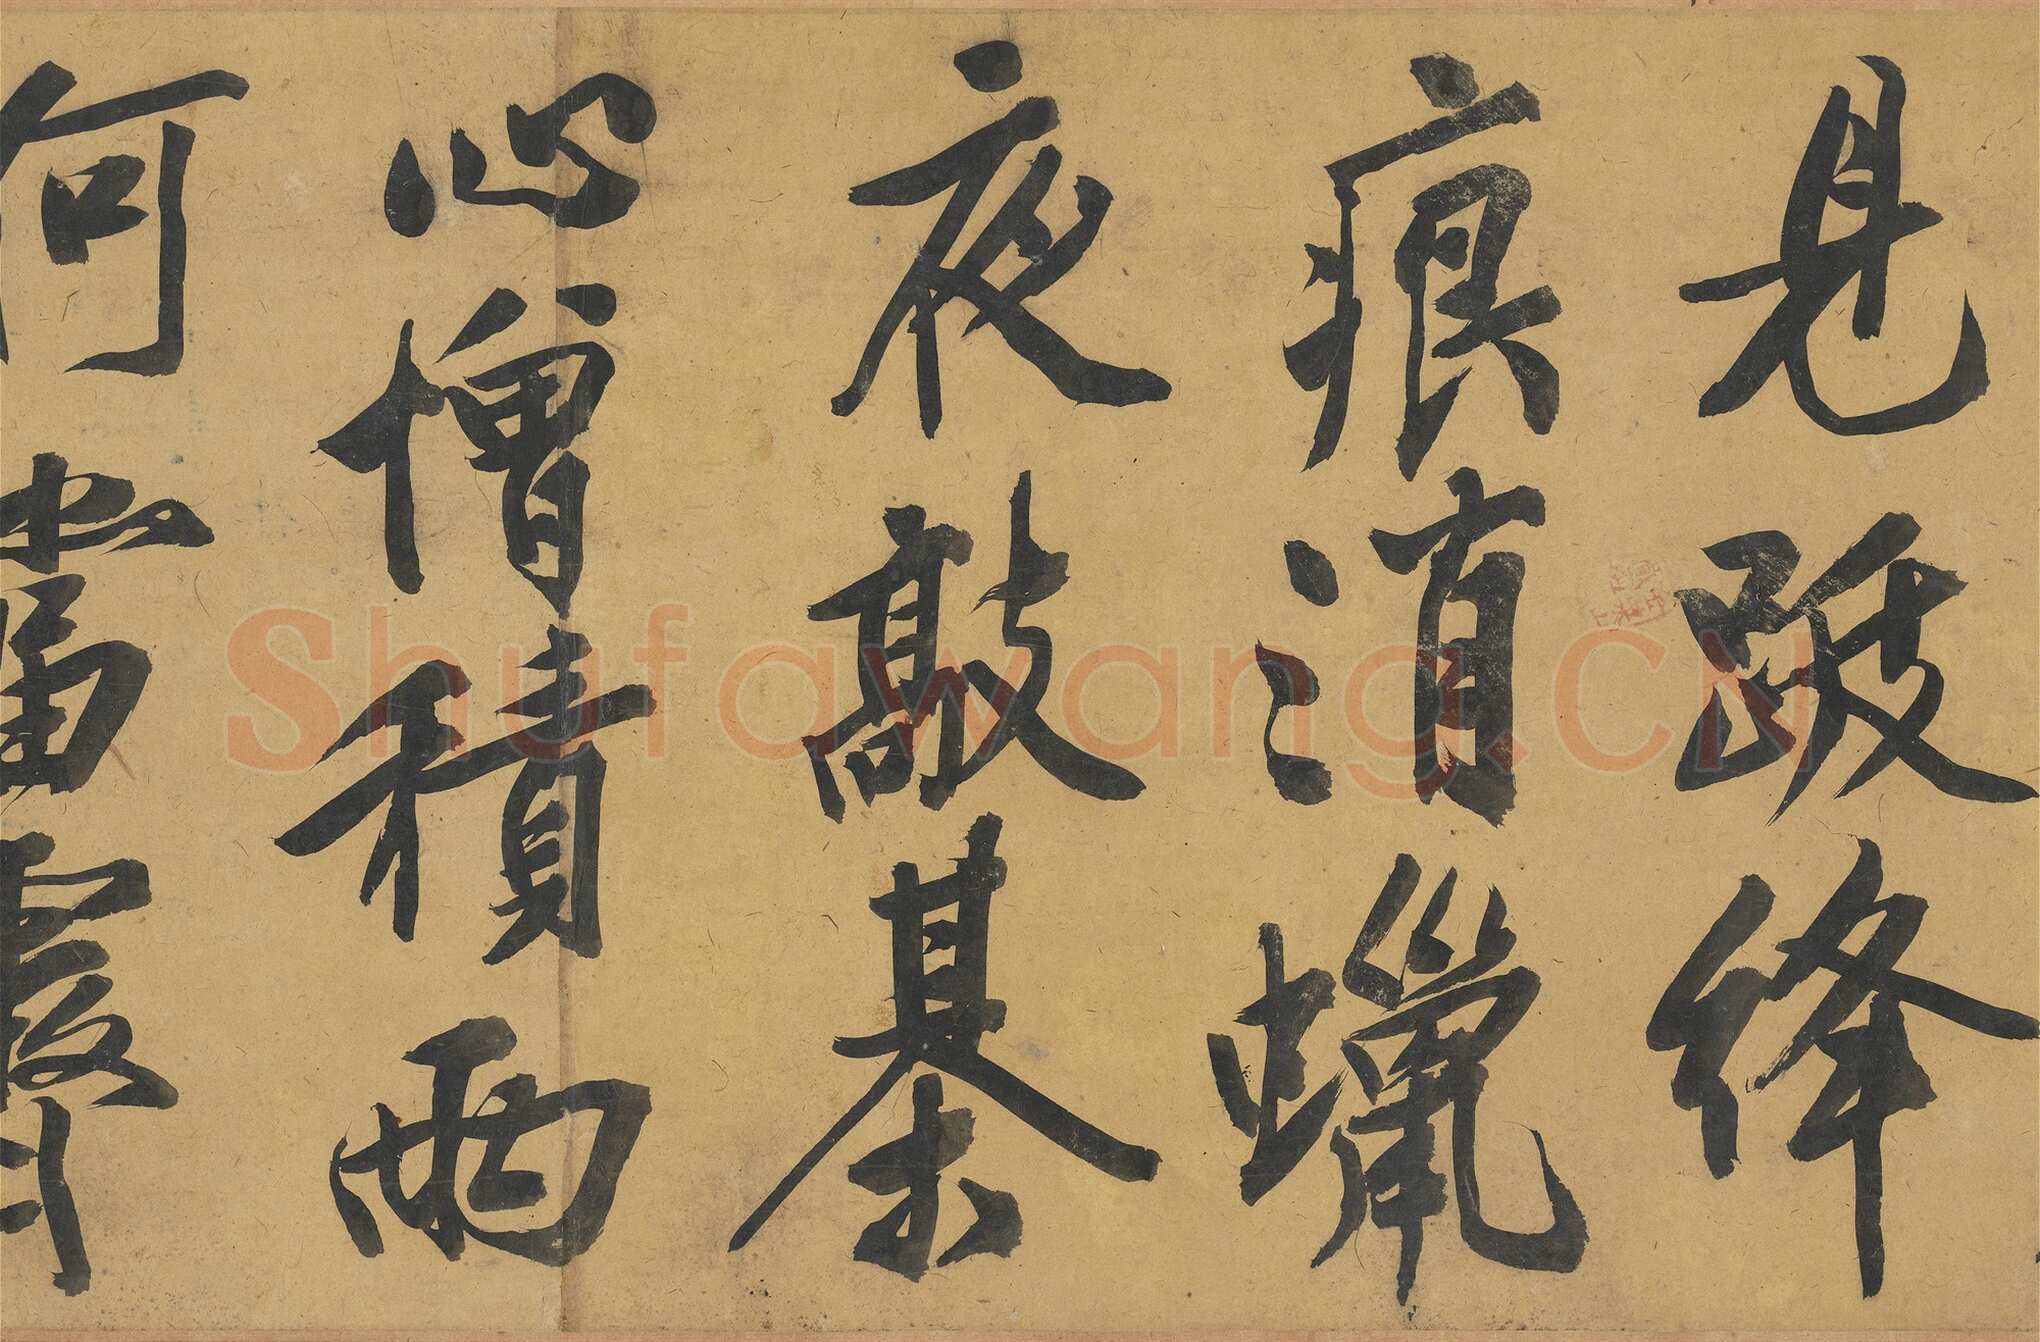 見跋絳
痕消蠟
夜敲棊
心憎積雨
何當霽
Shufawang.CN